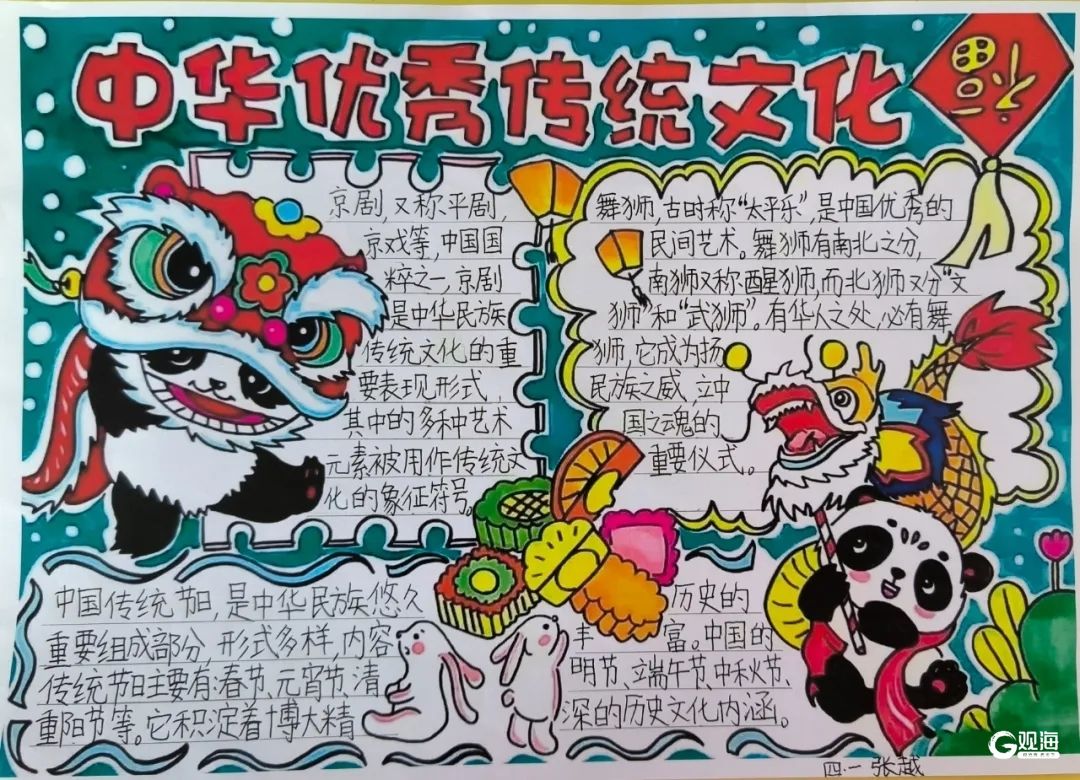 中华优秀传统文化
福
京剧,又称平剧,
京戏等,中国国
粹之一,京剧
是中华民族
传统文化的重
要表现形式,
其中的多种艺术
元素被用作传统文
化的象征符号。
舞狮,古时称“太平乐”,是中国优秀的
民间艺术。舞狮有南北之分,
南狮又称醒狮,而北狮又分“文
狮”和“武狮”。有华人之处,必有舞
狮,它成为扬
民族之威,立中
国之魂的
重要仪式。
中国传统节日,是中华民族悠久 历史的
重要组成部分,形式多样,内容 丰富。中国的
传统节日主要有:春节、元宵节、清 明节、端午节、中秋节、
重阳节等。它积淀着博大精 深的历史文化内涵。
四.一 张越
G 观海